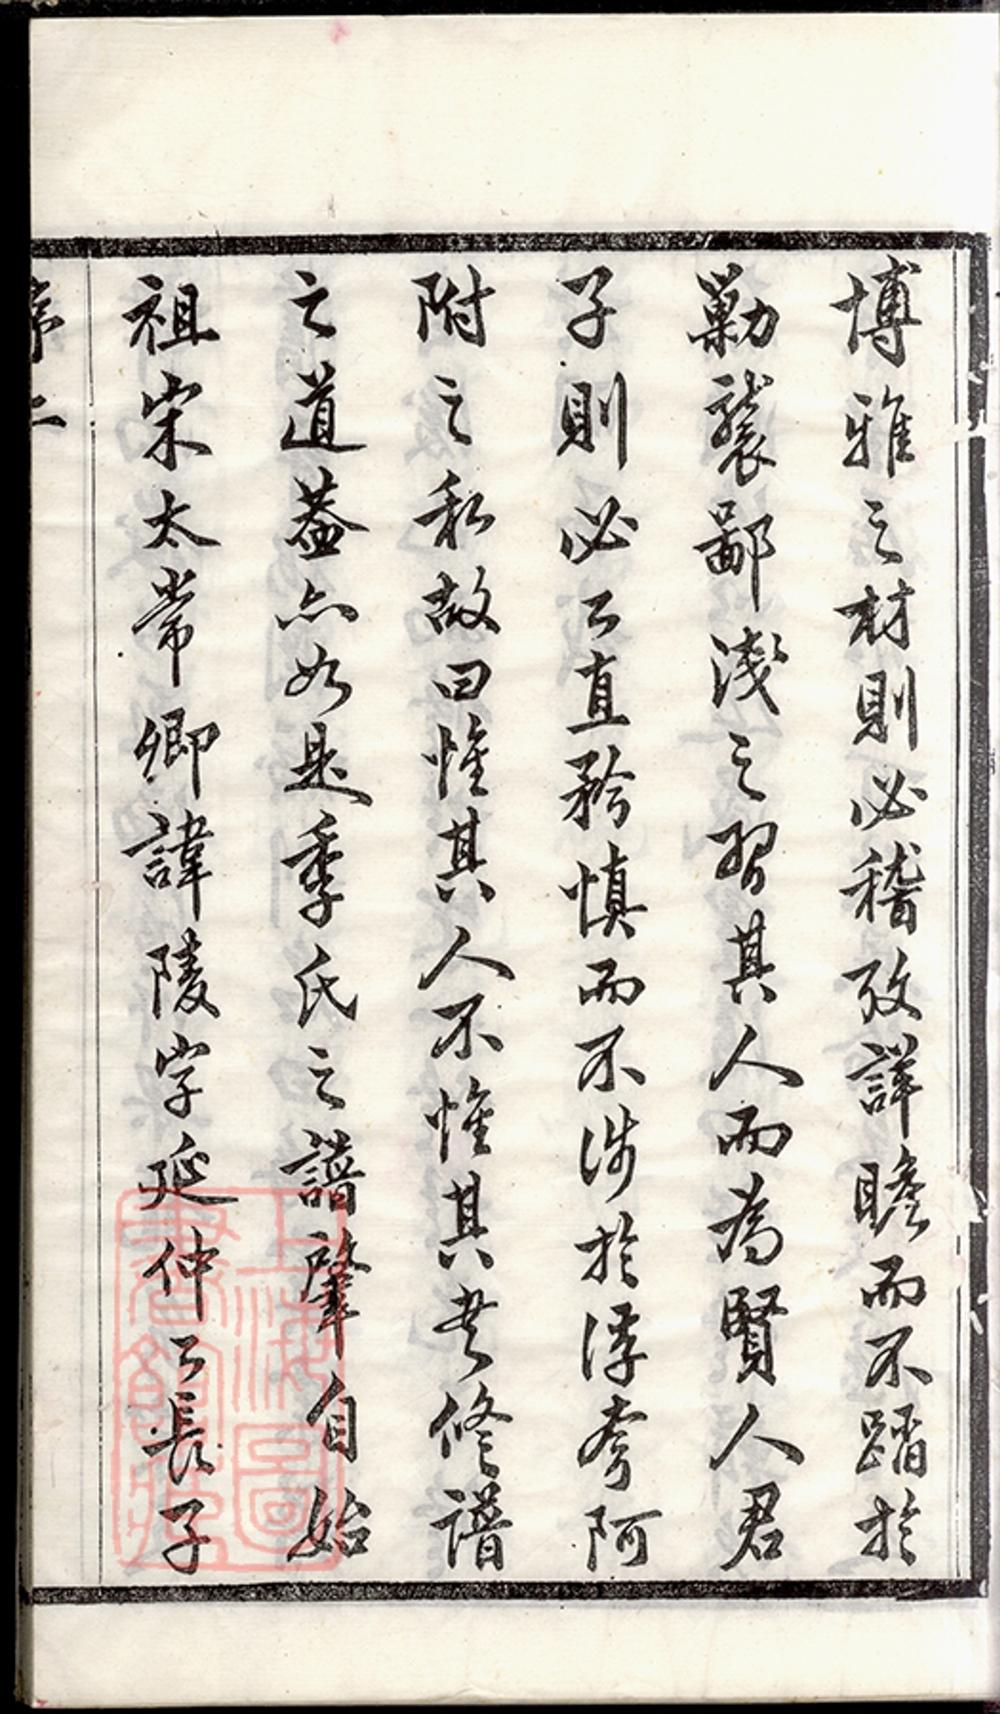 博雅之材則必稽攷詳瞻而不蹈於
勦襲鄙淺之習其人而為賢人君
子則必公直矜慎而不涉於浮夸阿
附之私故曰惟其人不惟其書修譜
之道蓋亦如是季氏之譜肇自始
祖宋太常卿諱陵字延仲公長子
序二
上海圖
書館藏